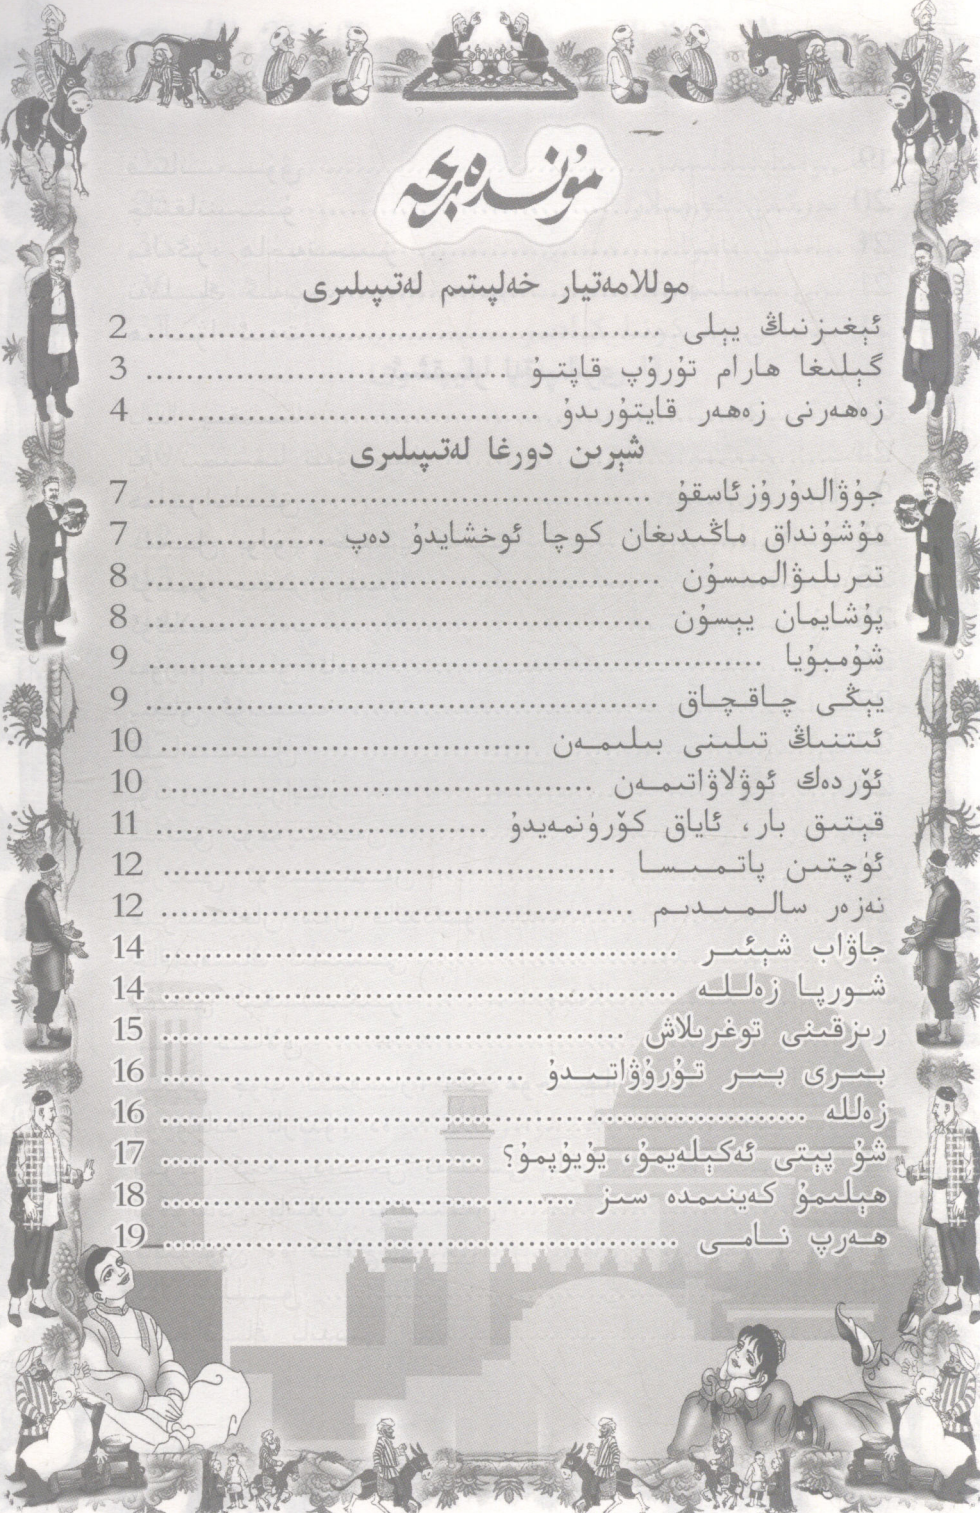 مۇندەرىجە
موللامەتيار خەلپىتىم لەتىپىلىرى
ئېغىزنىڭ يېلى ........ 2
گېلىغا ھارام تۇرۇپ قاپتۇ ........ 3
زەھەرنى زەھەر قايتۇرىدۇ ........ 4
شېرىن دورغا لەتىپىلىرى
جۇۋالدۇرۇزئاسقۇ ........ 7
مۇشۇنداق ماڭىدىغان كوچا ئوخشايدۇ دەپ ........ 7
تىرىلىۋالمىسۇن ........ 8
پۇشايمان يېسۇن ........ 8
شۇمبۇيا ........ 9
يېڭى چاقچاق ........ 9
ئىتنىڭ تىلىنى بىلىمەن ........ 10
ئۆردەك ئوۋلاۋاتىمەن ........ 10
قېتىق بار، ئاياق كۆرۈنمەيدۇ ........ 11
ئۈچتىن پاتمىسا ........ 12
نەزەر سالمىدىم ........ 12
جاۋاب شېئىر ........ 14
شورپا زەللە ........ 14
رىزقىنى توغرىلاش ........ 15
بىرى بىر تۇرۇۋاتىدۇ ........ 16
زەللە ........ 16
شۇ پېتى ئەكېلەيمۇ، يۇيۇپمۇ؟ ........ 17
ھېلىمۇ كەينىمدە سىز ........ 18
ھەرپ نامى ........ 19